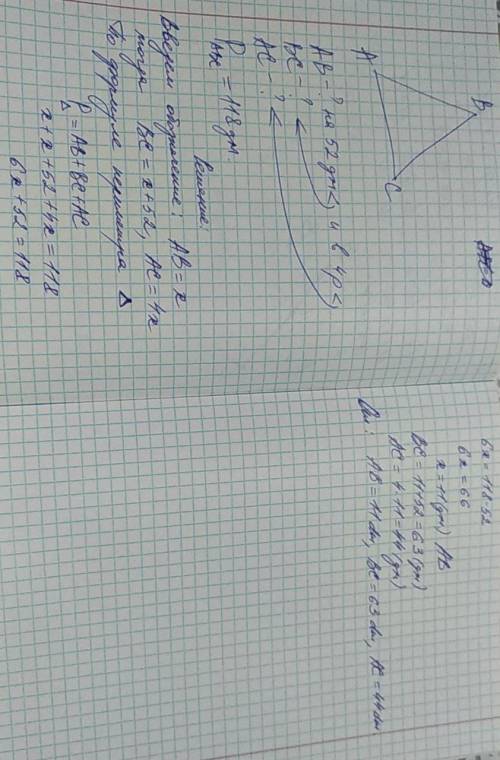 B
A
C
AB - ? на 52 дм <, и в 4 р <,
BC - ?
AC - ?
P = 118 дм
Решение:
Введем обозначение: AB = x
тогда BC = x + 52, AC = 4x
По формуле периметра Δ
P = AB + BC + AC
Δ
x + x + 52 + 4x = 118
6x + 52 = 118
6x = 118 - 52
6x = 66
x = 11 (дм) AB
BC = 11 + 52 = 63 (дм)
AC = 4 · 11 = 44 (дм)
AB = 11 dm, BC = 63 dm, AC = 44 dm